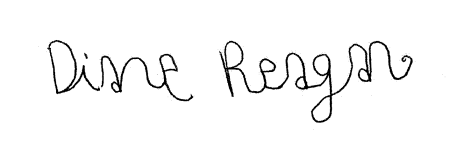 Diane Reagan